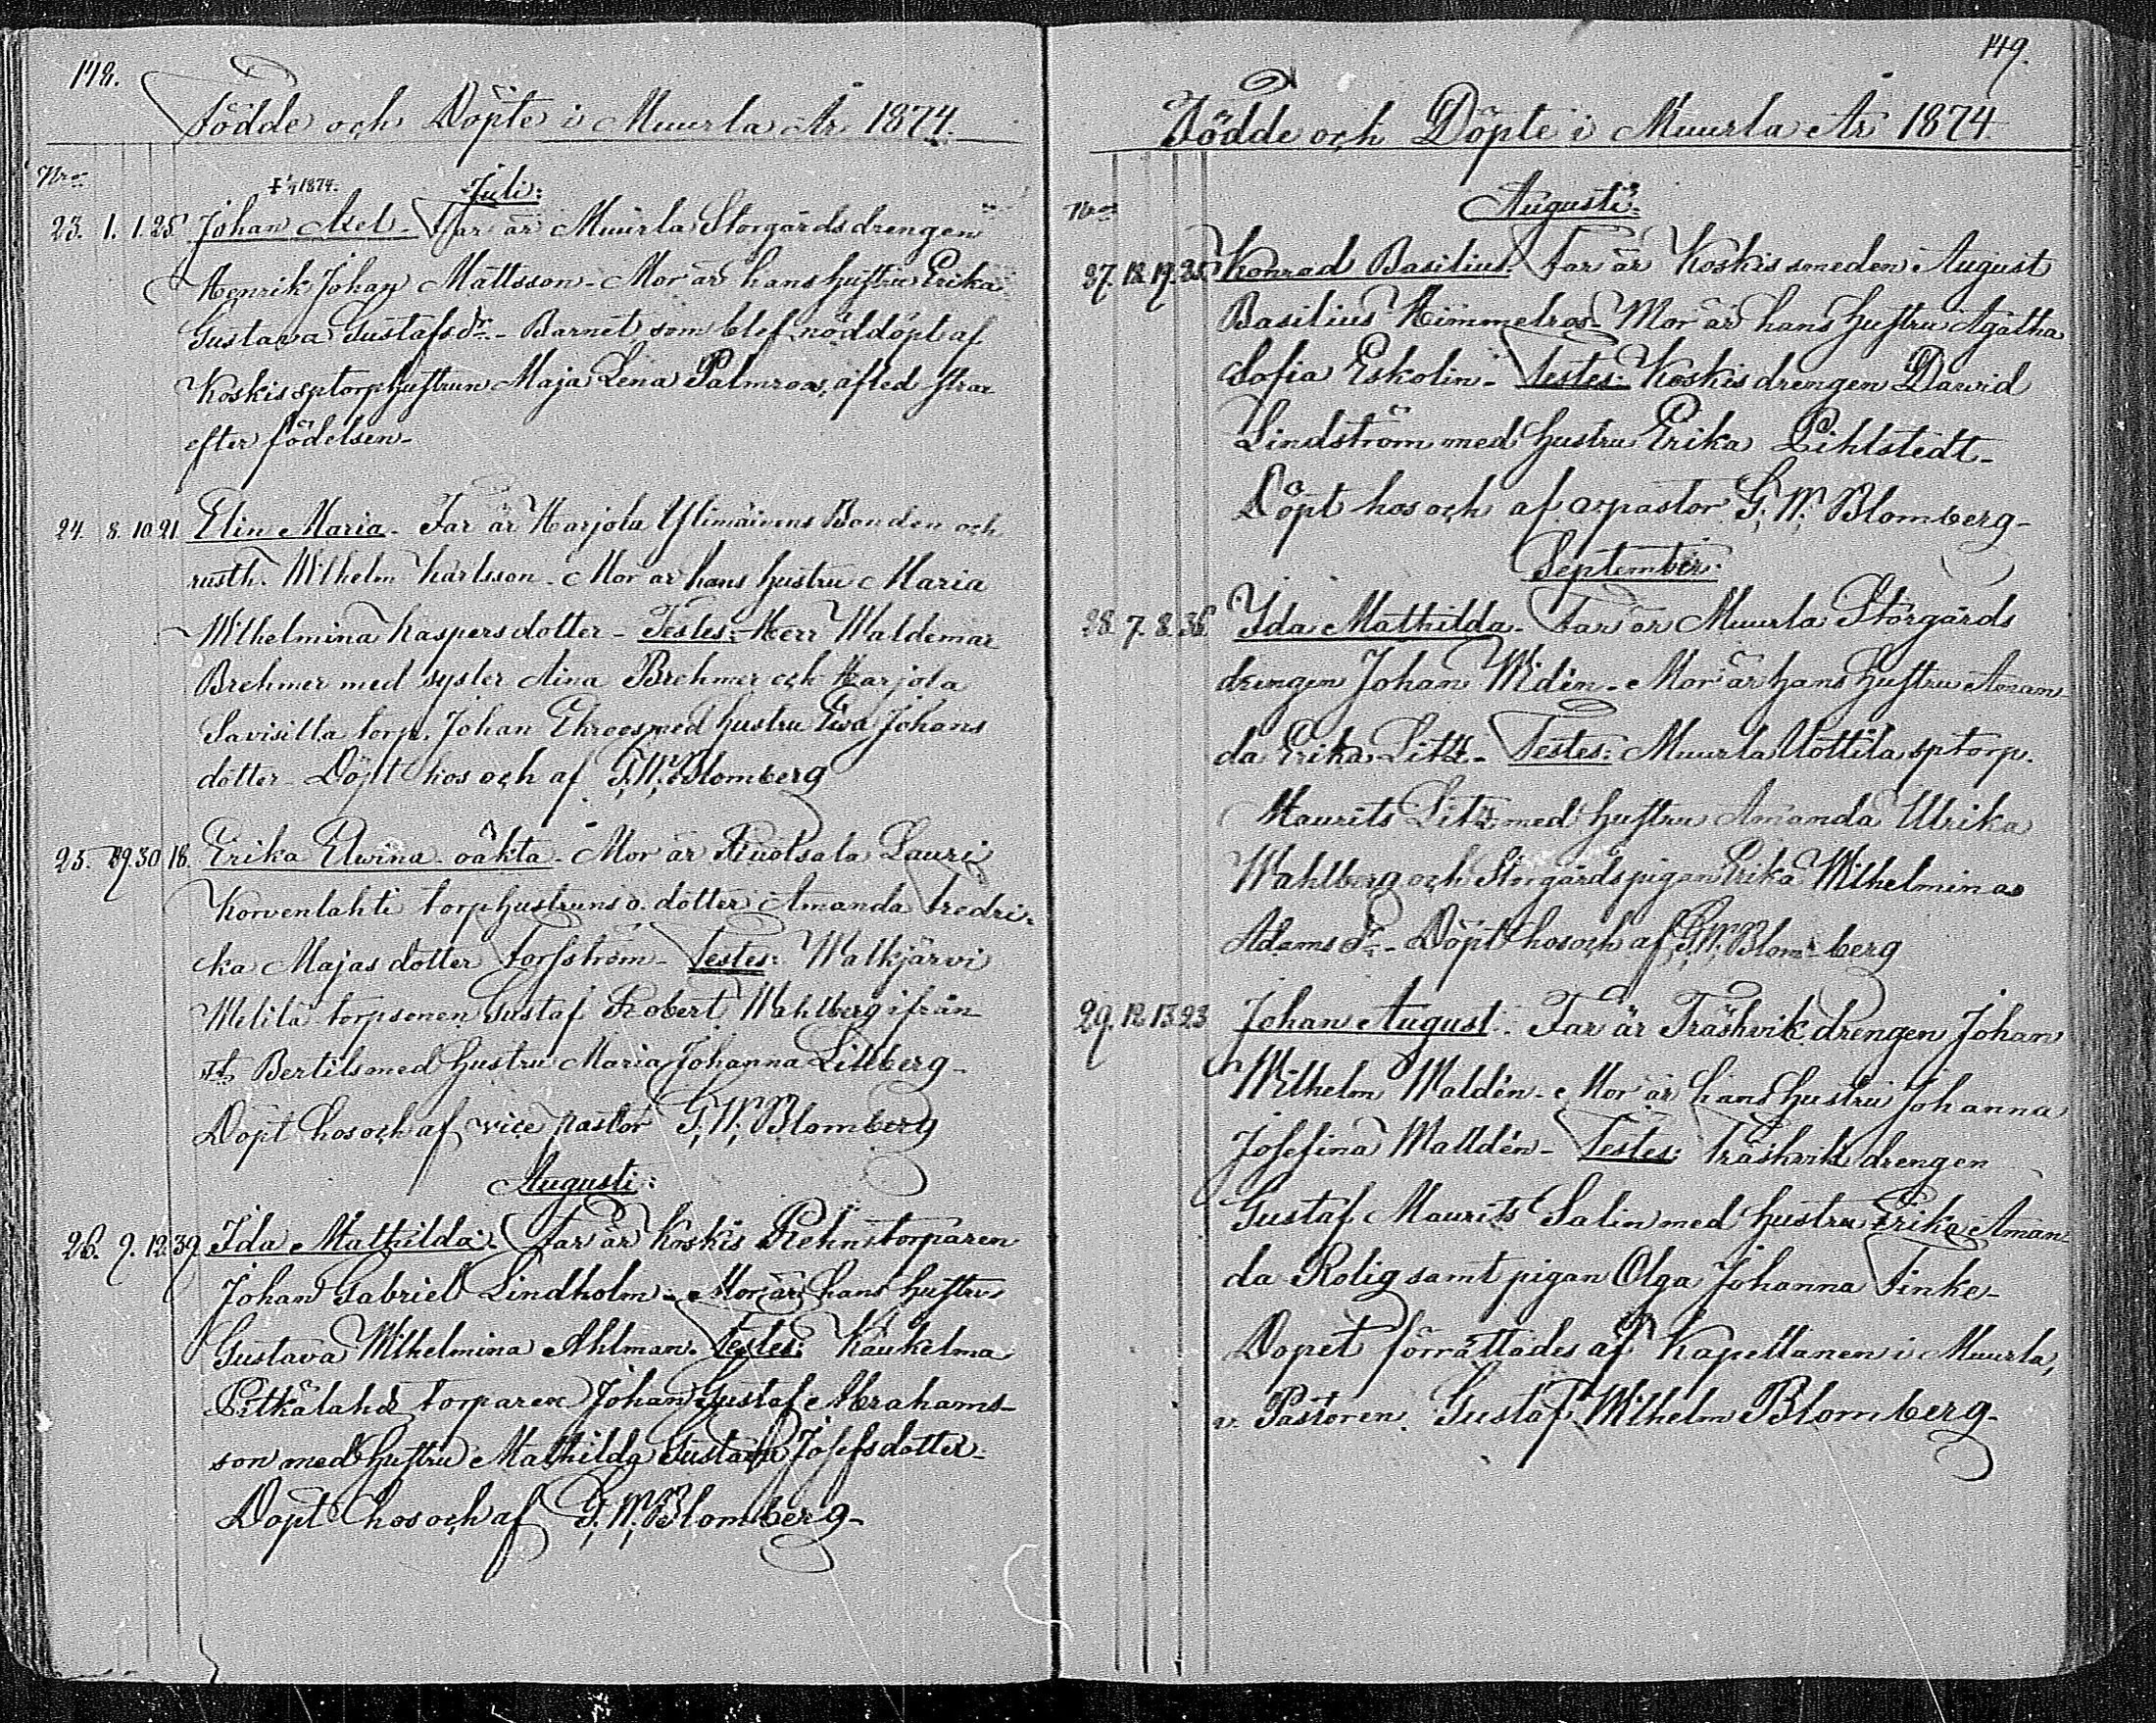 148.
Födde och Döpte i Muurla År 1874.
Nr
† 1/7 1874. Juli:
23. 1. 1. 25 Johan Axel. Far är Muurla Storgårds drengen
Henrik Johan Mattsson. Mor är hans hustru Erika
Gustava Gustafs dr. Barnet som blef nöddöpt af
Koskis sptorphustrun Maja Lena Palmroos, afled strax
efter födelsen.
24. 8. 10. 21. Elin Maria. Far är Harjola Ylimäinens Bonden och
rusth. Wilhelm Karlsson. Mor är hans hustru Maria
Wilhelmina Kaspersdotter. Testes: Herr Waldemar
Brehmer med syster Aina Brehmer och Harjola
Savisilta torp. Johan Ekroos med hustru Eva Johans
dotter. Döpt hos och af G. W. Blomberg
25. 29. 30 18. Erika Elvina oäkta. Mor är Ruotsala Lauri
Korvenlahti torphustruns o. dotter Amanda Fredri-
ka Majasdotter Forsström. Testes: Walkjärvi
Melilä torpsonen Gustaf Robert Wahlberg ifrån
St Bertils med hustru Maria Johanna Lillberg.
Döpt hos och af vice pastor G. W. Blomberg
Augusti:
26. 9. 12. 39 Ida Mathilda. Far är Koskis Rehn torparen
Johan Gabriel Lindholm. Mor är hans hustru
Gustava Wilhelmina Ahlman. Testes: Kaukelma
Pitkälahti torparen Johan Gustaf Abrahams-
son med hustru Mathilda Gustava Josefsdotter.
Döpt hos och af G. W. Blomberg.
149.
Födde och Döpte i Muurla År 1874
Augusti:
Nr
27. 18. 19. 35 Konrad Basilius. Far är Koskis smeden August
Basilius Himmelroos. Mor är hans hustru Agatha
Sofia Eskolin. Testes: Koskis drengen David
Lindström med hustru Erika Pihlstedt.
Döpt hos och af v. pastor G. W. Blomberg.
September:
28. 7. 8. 36 Ida Mathilda. Far är Muurla Storgårds
drengen Johan Widen. Mor är hans hustru Aman
da Erika Litz. Testes: Muurla Uottila sptorp.
Maurits Litz med hustru Amanda Ulrika
Wahlberg och Storgårds pigan Erika Wilhelmina
Adams dr. Döpt hos och af G. W. Blomberg
29. 12. 13. 23 Johan August. Far är Träskvik drengen Johan
Wilhelm Waldén. Mor är hans hustru Johanna
Josefina Walldén. Testes: Träskvik drengen
Gustaf Maurits Salin med hustru Erika Aman
da Rolig samt pigan Olga Johanna Finke.
Dopet förrättades af Kapellanen i Muurla,
v. Pastoren Gustaf Wilhelm Blomberg.